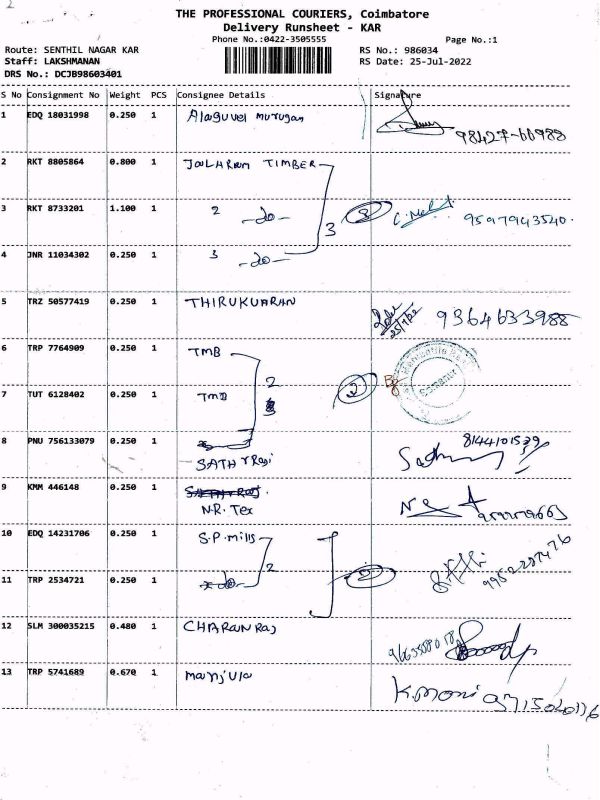 THE PROFESSIONAL COURIERS, Coimbatore
Delivery Runsheet - KAR
Phone No.:0422-3505555
Page No.:1
Route: SENTHIL NAGAR KAR
RS No.: 986034
Staff: LAKSHMANAN
RS Date: 25-Jul-2022
DRS No.: DCJB98603401
S No Consignment No Weight PCS Consignee Details Signature
1 EDQ 18031998 0.250 1 Alaguvel murugan
98427-60988
2 RKT 8805864 0.800 1 TIMBER
3 RKT 8733201 1.100 1 2 -do- 3 3 9597943540.
4 JNR 11034302 0.250 1 3 -do-
5 TRZ 50577419 0.250 1 THIRUKUARAN 9364633988
25/7/22
6 TRP 7764909 0.250 1 TMB
7 TUT 6128402 0.250 1 TMB 2 2
8 PNU 756133079 0.250 1 8144101539
SATHYRaj
9 KMM 446148 0.250 1
N.R. Tex
10 EDQ 14231706 0.250 1 S.P. mills
11 TRP 2534721 0.250 1 do 2 2
12 SLM 300035215 0.480 1 CHARANRAJ
13 TRP 5741689 0.670 1 manjula
K.moni